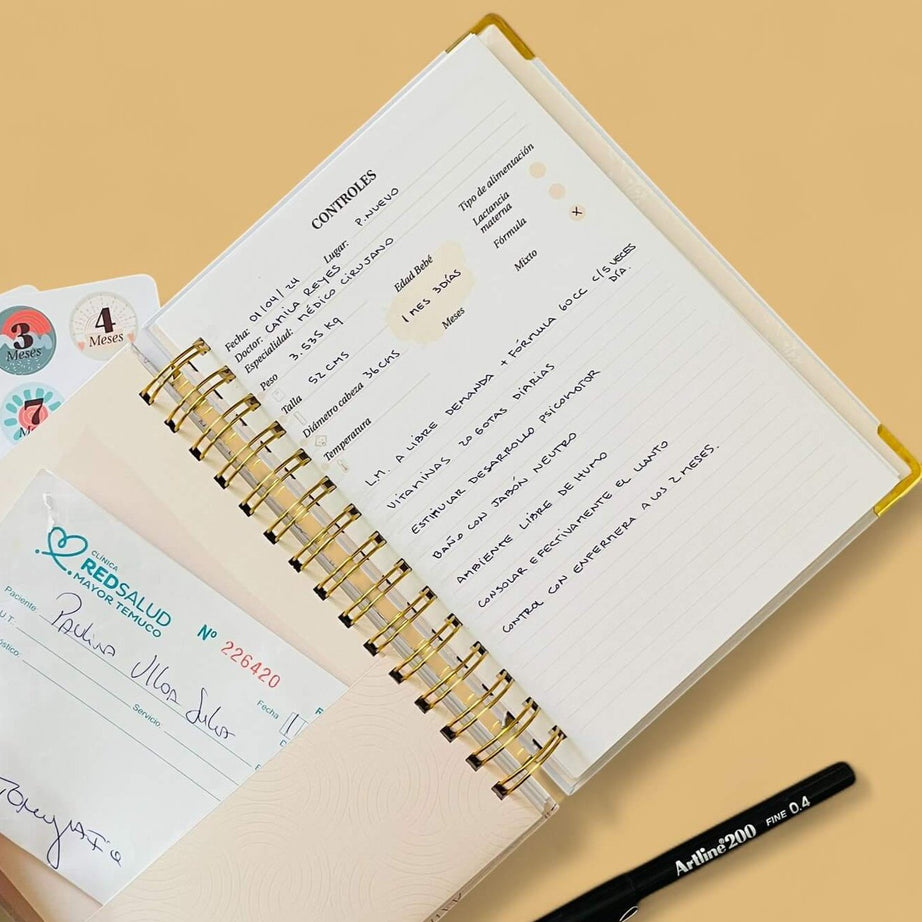 CONTROLES
Fecha: 01/04/24
Lugar: P. NUEVO
Doctor: CAMILA REYES
Especialidad: MÉDICO CIRUJANO
Peso 3.535 Kg
Talla 52 CMS
Diámetro cabeza 36 CMS
Temperatura
Edad Bebé
1 MES 3 DÍAS
Meses
Tipo de alimentación
Lactancia
materna
Fórmula
Mixto
X
L.M. A LIBRE DEMANDA + FÓRMULA 60CC C/5 VECES
DÍA.
VITAMINAS 20 GOTAS DIARIAS
ESTIMULAR DESARROLLO PSICOMOTOR
BAÑO CON JABÓN NEUTRO
AMBIENTE LIBRE DE HUMO
CONSOLAR EFECTIVAMENTE EL LLANTO
CONTROL CON ENFERMERA A LOS 2 MESES.
3
Meses
4
Meses
7
CLÍNICA
REDSALUD
MAYOR TEMUCO
Nº 226420
Paciente: Paulina Ulloa
Fecha
Servicio:
Artline®200 FINE 0.4